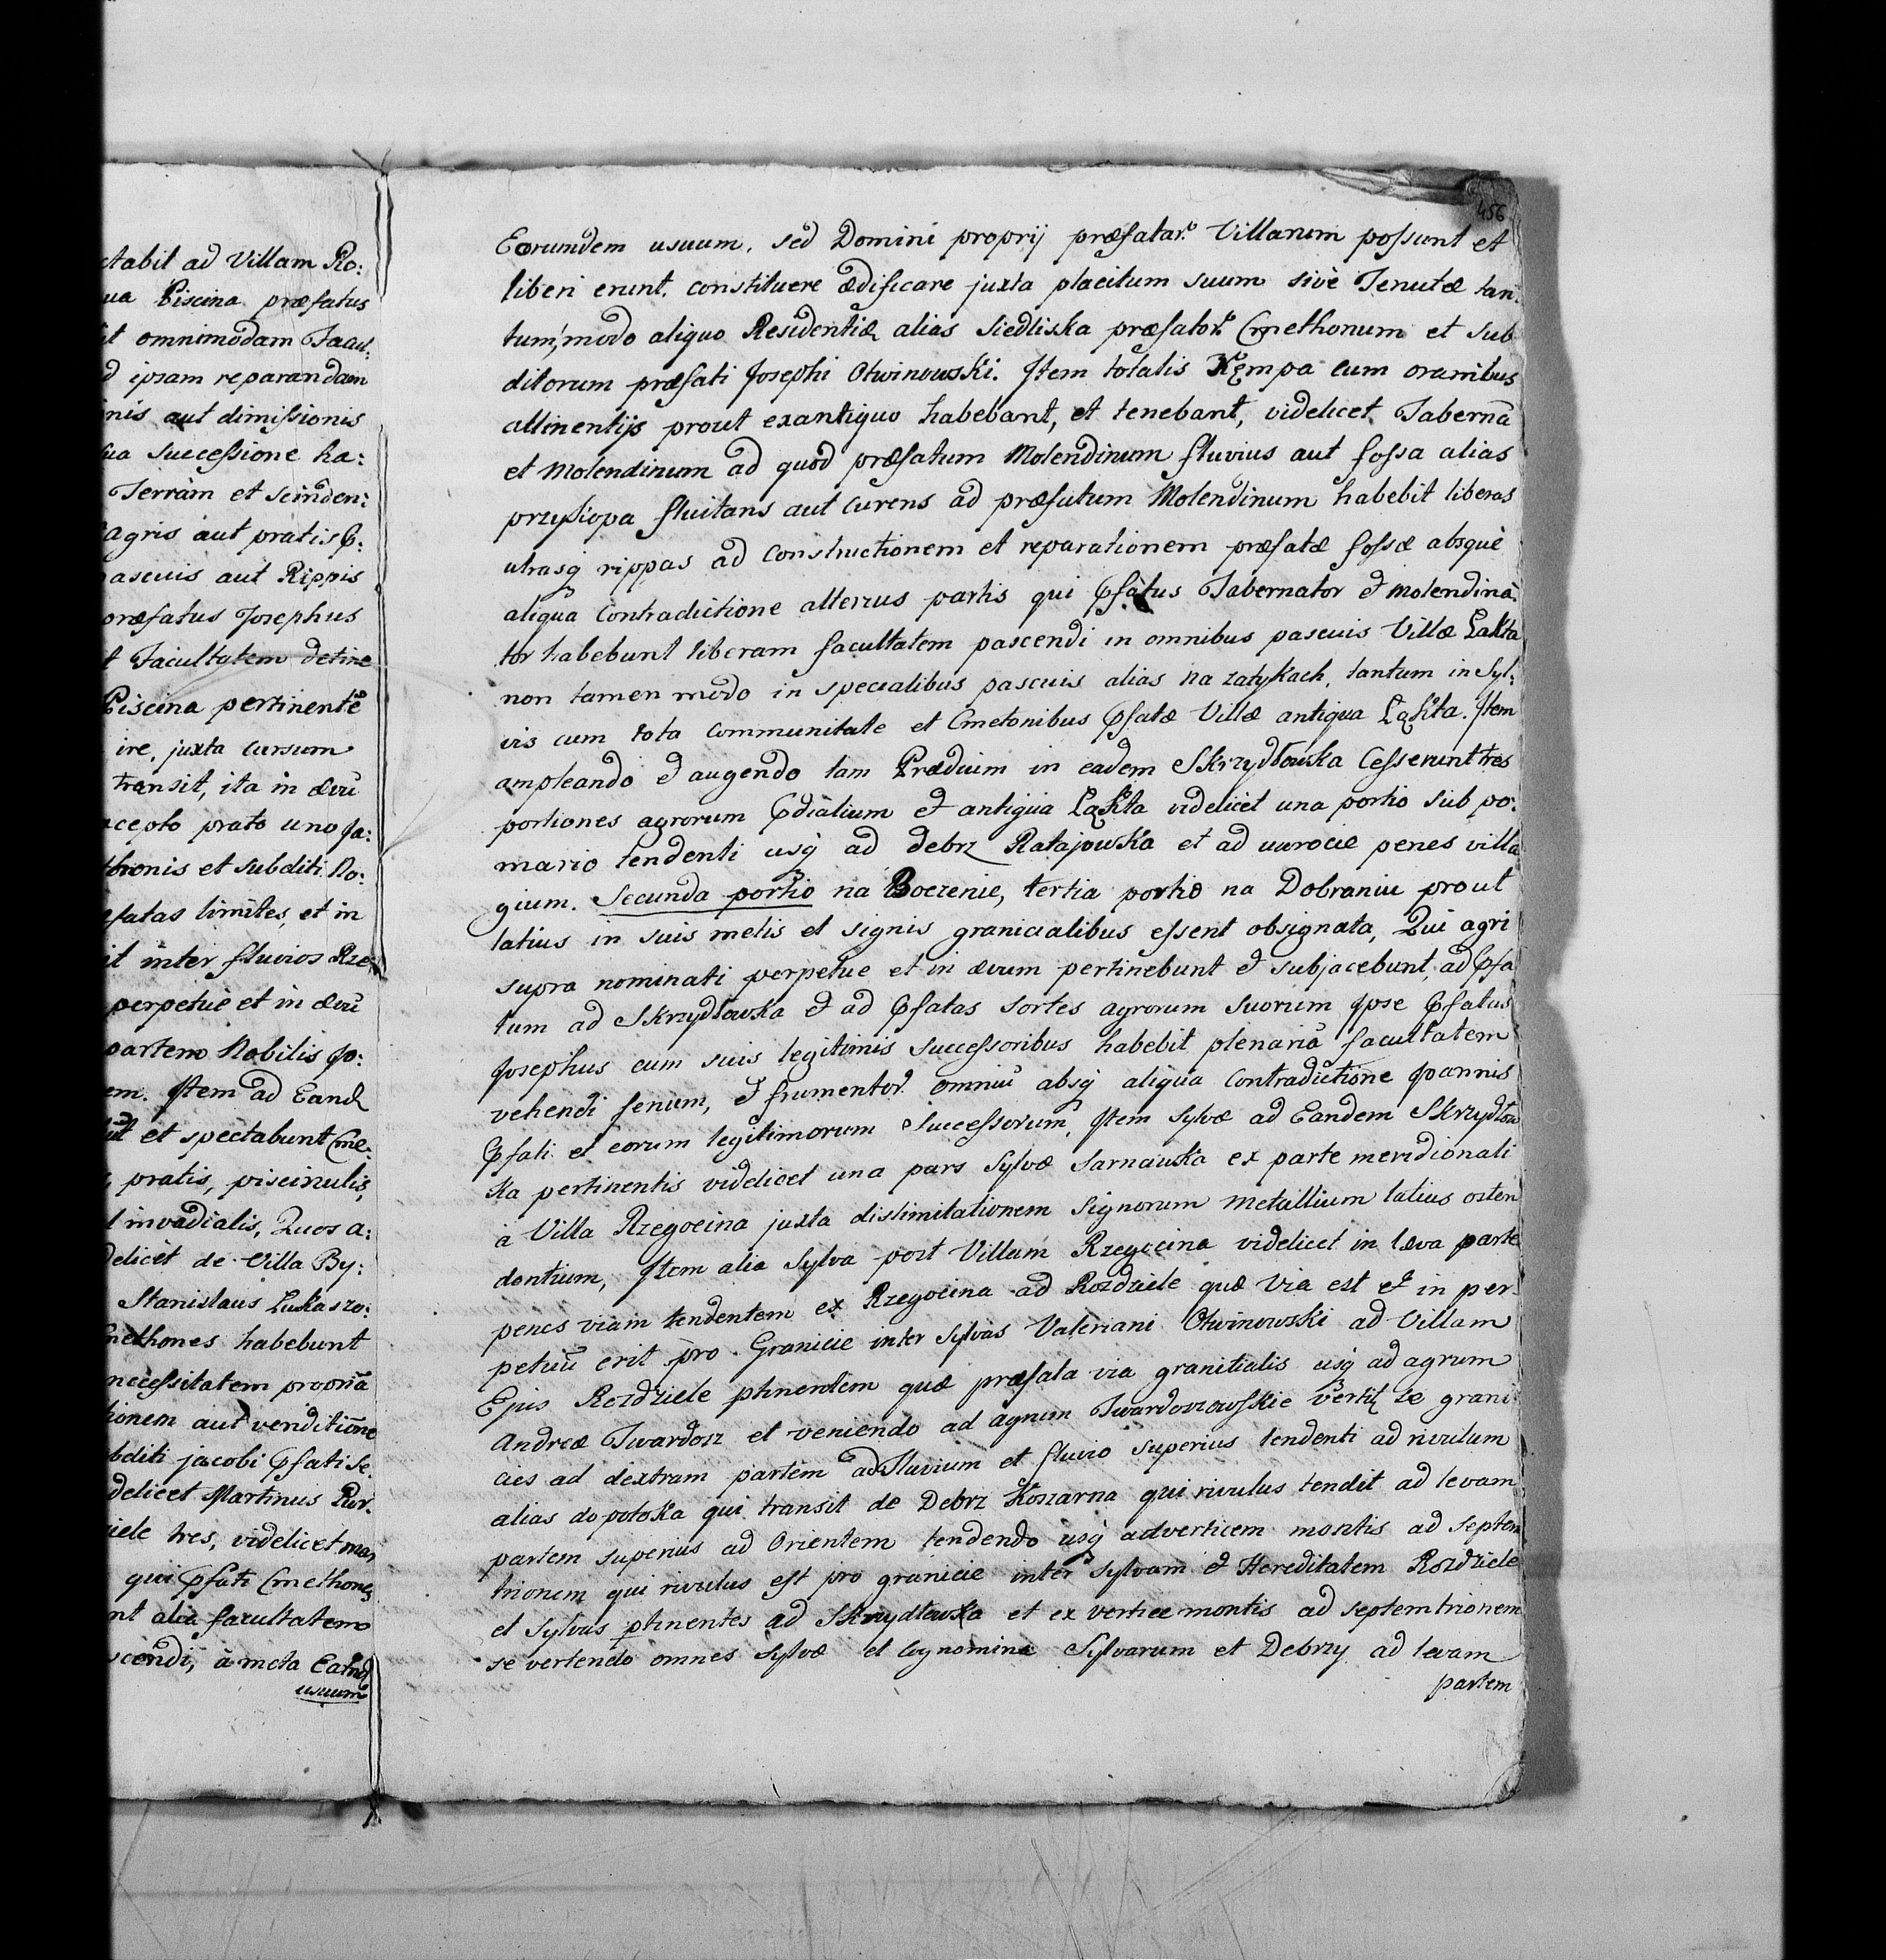 ctabit ad Villam Ro:
ua Piscina præfatus
it omnimodam Facul:
d ipsam reparandam
inis aut dimissionis
sua successione ha:
Terràm et scinden:
agris aut pratis p:
pascuis aut Rippis
præfatus Josephus
t Facultatem detine
Piscina pertinentē
ire, juxta cursum
transit, ita in ævū
acepto prato uno Ja:
thonis et subditi No:
efatas limites, et in
it inter fluvios Rze
perpetuè et in ævū
partem Nobilis Jo:
em. Item ad Eand
ūt et spectabunt Cme:
, pratis, piscinulis,
l invadialis, Quos a:
delicèt de Villa By:
Stanislaus Lukaszo:
methones habebunt
necessitatem propriā
tionem aut venditiōne
bditi jacobi pfati se
delicet Martinus Pur.
iele tres, videlicet mar
qui pfati Cmethones
nt alia facultatem
scendi, à meta Eand
usuum
456
Eorumdem usuum, sed Domini proprij præfatar. Villarum possunt et
liberi erunt, constituere ædificare juxta placitum suum sivè Tenutæ tan:
tum,modo aliquo Residentiæ alias Siedliska præfator. Cmethonum et sub
ditorum præfati Josephi Otwinowski. Item totalis Kęmpa cum omnibus
attinentijs prout exantiquo habebant, et tenebant, videlicet Tabernā
et Molendinum ad quod præfatum Molendinum fluvius aut fossa alias
przysiopa fluitans aut curens ad præfatum Molendinum habebit liberas
utrasq rippas ad constructionem et reparationem præfatæ fossæ absquè
aliqua contradictione alterius partis qui pfatus Tabernator et Molendina
tor habebunt liberam facultatem pascendi in omnibus pascuis Villæ Łąkta
non tamen modo in specialibus pascuis alias na zatykach, tantum in Syl:
vis cum tota communitate et Cmetonibus pfatæ Villæ antiqua Łąkta. Item
ampleando et augendo tam Prædium in eadem Skrzydłowka Cesserunt tres
portiones agrorum pdialium et antiqua Łąkta videlicèt una portio sub po:
mario tendenti usq ad debrz Ratajowska et ad uwrocie penes villa
gium. Secunda portio na Boczenie, tertia portio na Dobraniu prout
latius in suis metis et signis granicialibus essent obsignata, Qui agri
supra nominati perpetue et in ævum pertinebunt et subjacebunt, ad pfa
tum ad Skrzydłowka et ad pfatas sortes agrorum suorum ipse pfatus
Josephus cum suis legitimis successoribus habebit plenariā facultatem
vehendi fenum, et frumentor. omniū absq aliqua contradictione Joannis
pfati et eorum legitimorum successorum, Item sylvæ ad Eandem Skrzydłow
ka pertinentis videlicet una pars sylvæ Sarnawska ex parte meridionali
à Villa Rzegocina juxta dislimitationem signorum metallium latius osten
dentium, Item alia sylva post Villam Rzegocina videlicet in læva parte
penes viam tendentem ex Rzegocina ad Rozdziele quæ via est et in per
petuū erit pro Granicie inter sylvas Valeriani Otwinowski ad Villam
Ejus Rozdziele ptinentem quæ præfata via granitialis usq ad agrum
Andreæ Twardosz et veniendo ad agrum Twardoszowskie vertit se grani
cies ad dextram partem ad Fluvium et fluvio superius tendenti ad rivulum
alias do potoka qui transit de Debrz Koszarna qui rivulus tendit ad levam
partem superius ad Orientem tendendo usq adverticem montis ad septem
trionem qui rivulus est pro granicie inter sylvam et Hereditatem Rozdziele
et sylvas ptinentes ad Skrzydłowka et ex vertice montis ad septemtrionem
se vertendo omnes sylvæ et Cognomina Sylvarum et Debrzy ad levam
partem